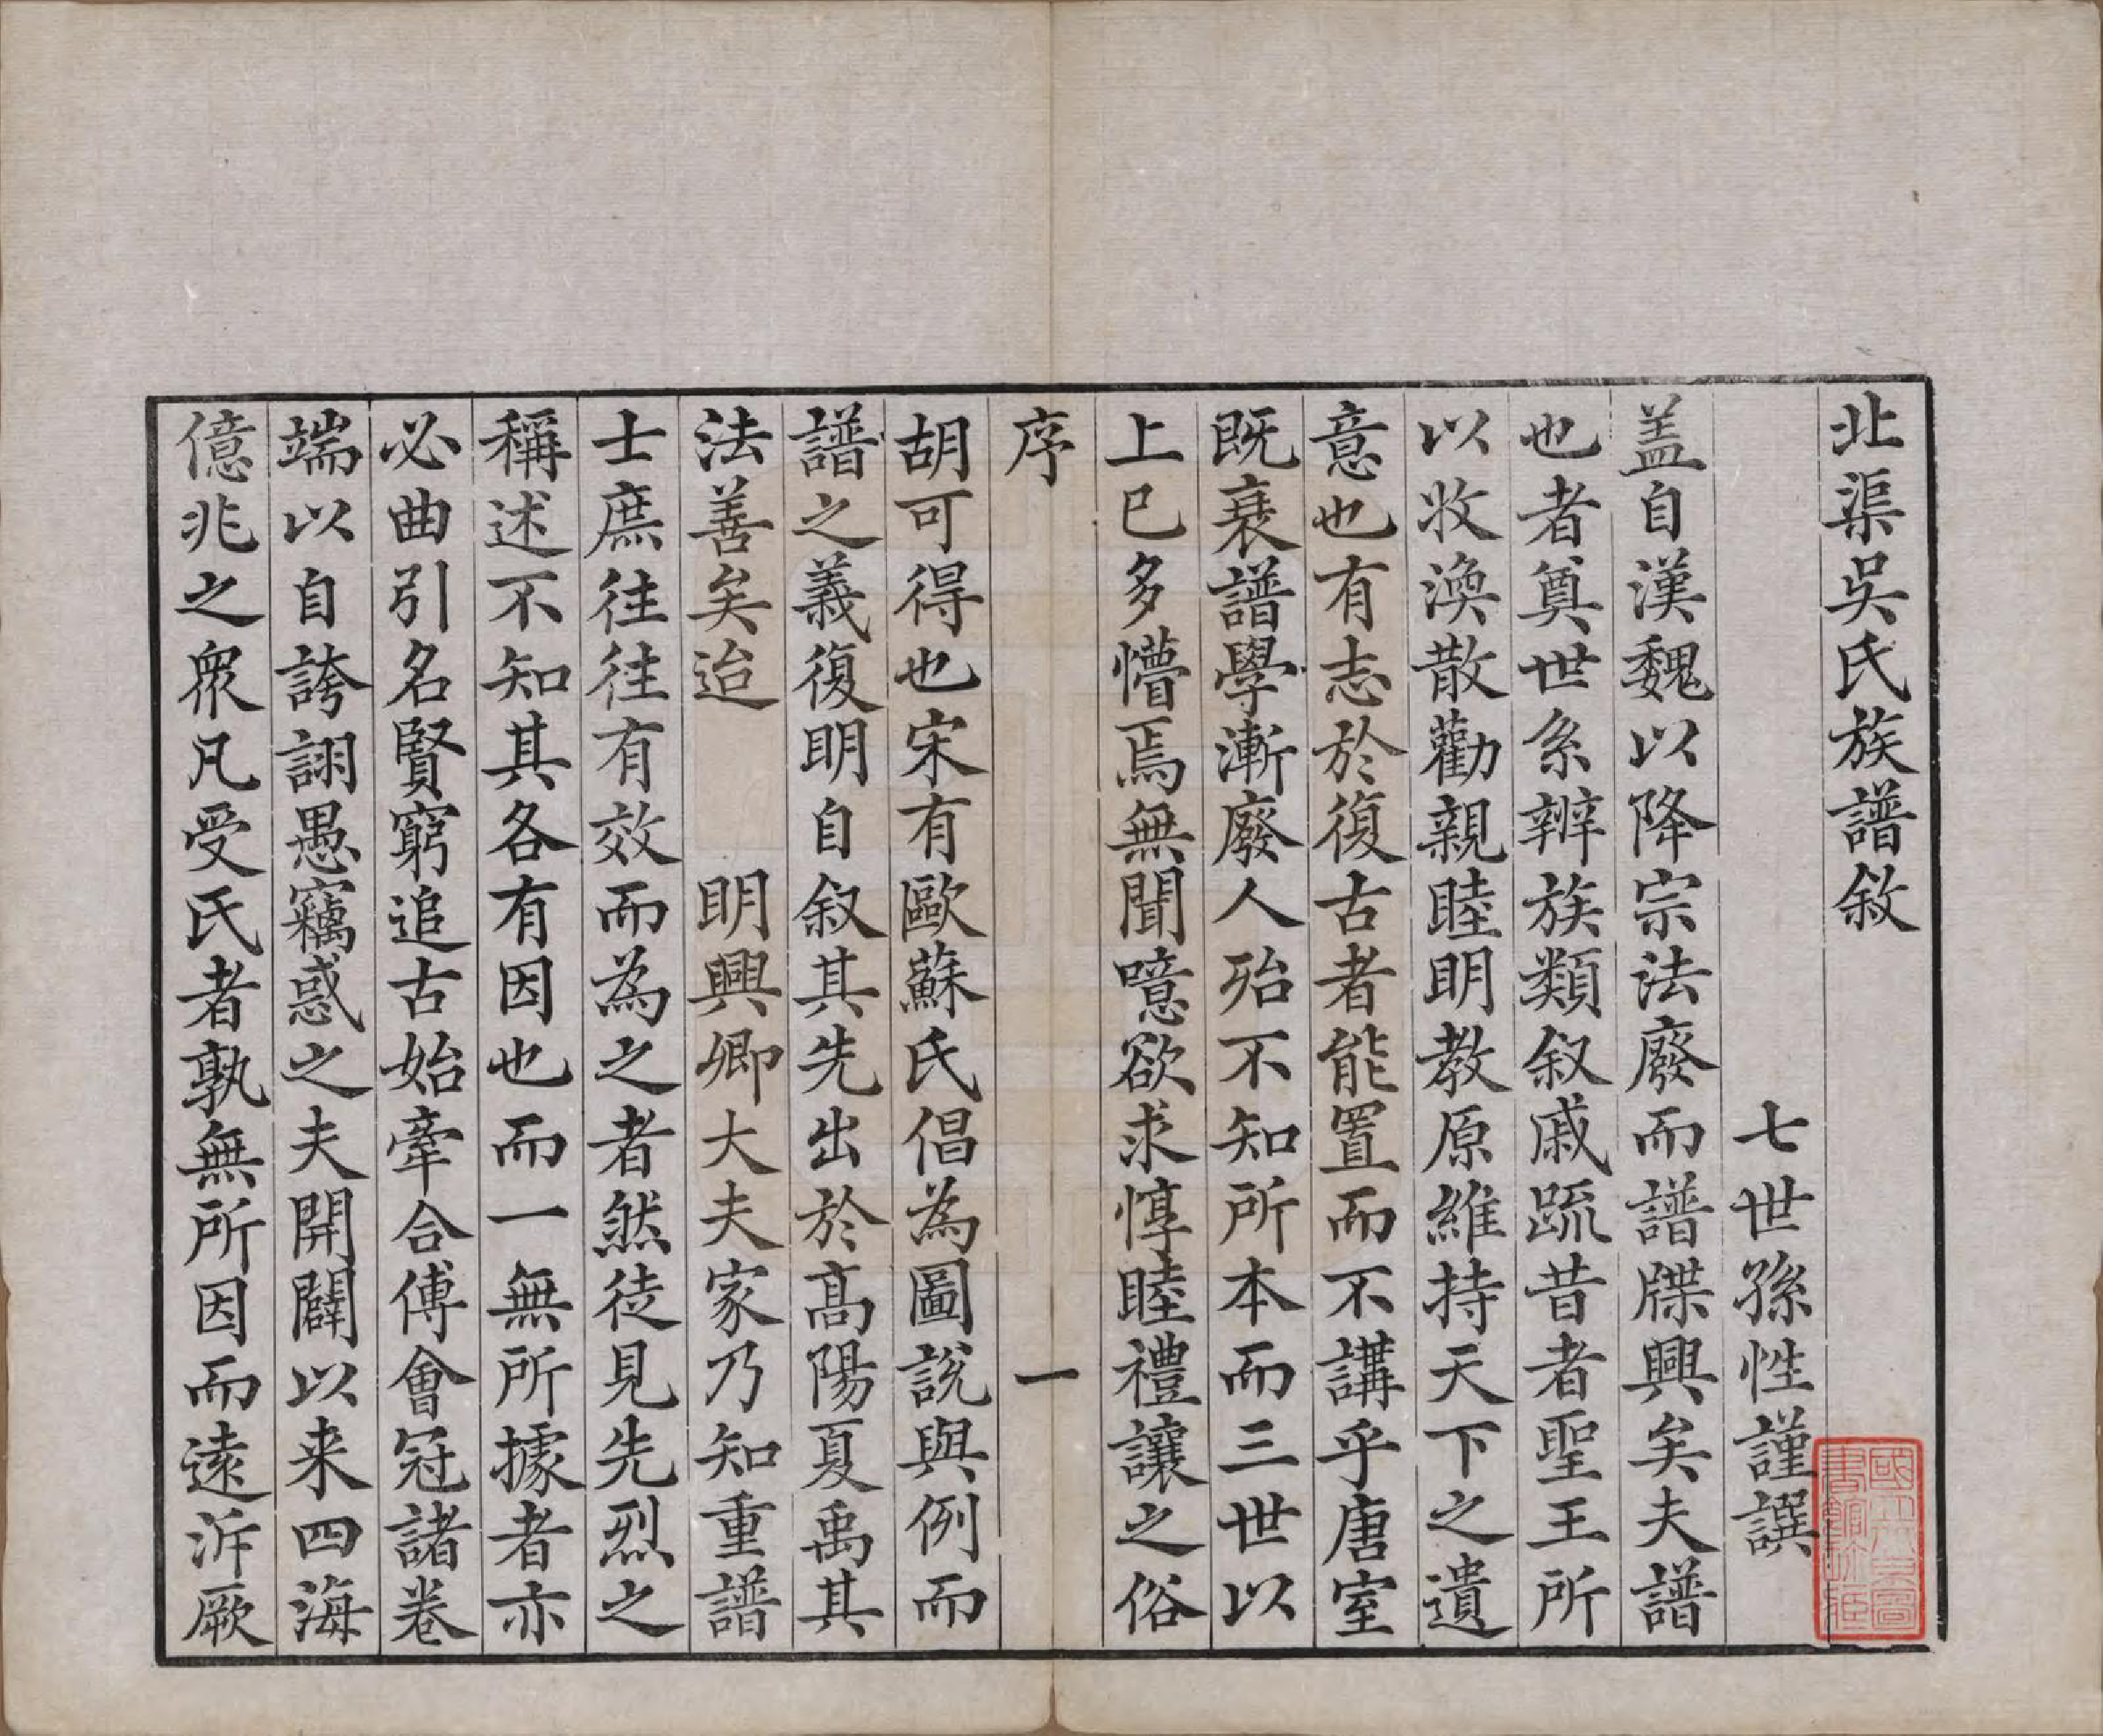 北渠吳氏族譜敘
七世孫性謹譔
盖自漢魏以降宗法廢而譜牒興矣夫譜
也者奠世系辨族類叙戚疏昔者聖王所
以收渙散勸親睦明教原維持天下之遺
意也有志於復古者能置而不講乎唐室
既衰譜學漸廢人殆不知所本而三世以
上已多懵焉無聞噫欲求惇睦禮讓之俗
序 一
胡可得也宋有歐蘇氏倡為圖說與例而
譜之義復明自叙其先出於髙陽夏禹其
法善矣迨 明興卿大夫家乃知重譜
士庶往往有效而為之者然徒見先烈之
稱述不知其各有因也而一無所據者亦
必曲引名賢窮追古始牽合傅會冠諸卷
端以自誇詡愚竊惑之夫開闢以来四海
億兆之眾凡受氏者孰無所因而遠泝厥